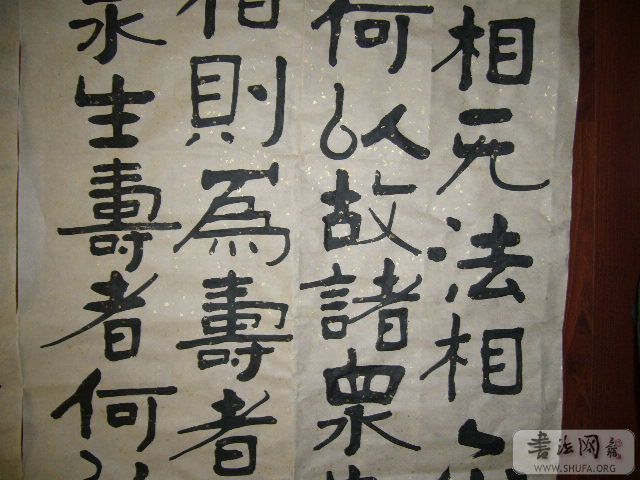 相无法相
何以故諸眾
相則為壽者
生壽者何以
書法网
WWW.SHUFA.ORG